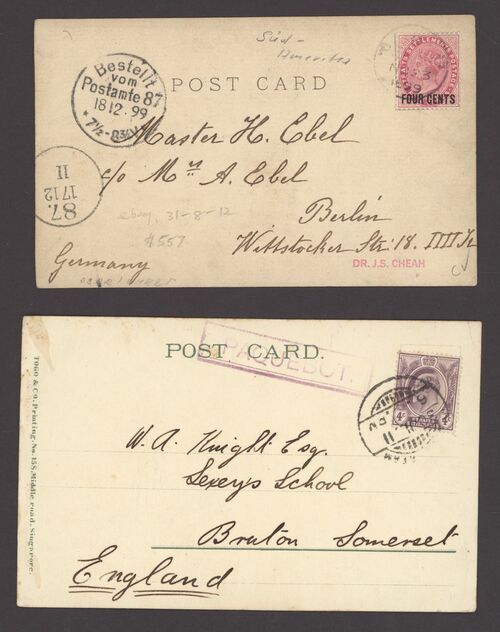 Süd-
Amerika
Bestellt
vom
Postamte 87
18 12. 99
POST CARD
STRAITS SETTLEMENTS POSTAGE
FOUR CENTS
99
Master H. Ebel
87.
17 12
II
c/o Mrs A. Ebel
ebay, 31-8-12
Berlin
$557
Wittstocker Str: 18. IIII Tr
Germany
DR. J.S. CHEAH
POST CARD.
PAQUEBOT.
TOGO & Co. Printing. No. 158, Middle road, Singapore.
W. A. Knight Esq.
Sexey's School
Bruton Somerset
England